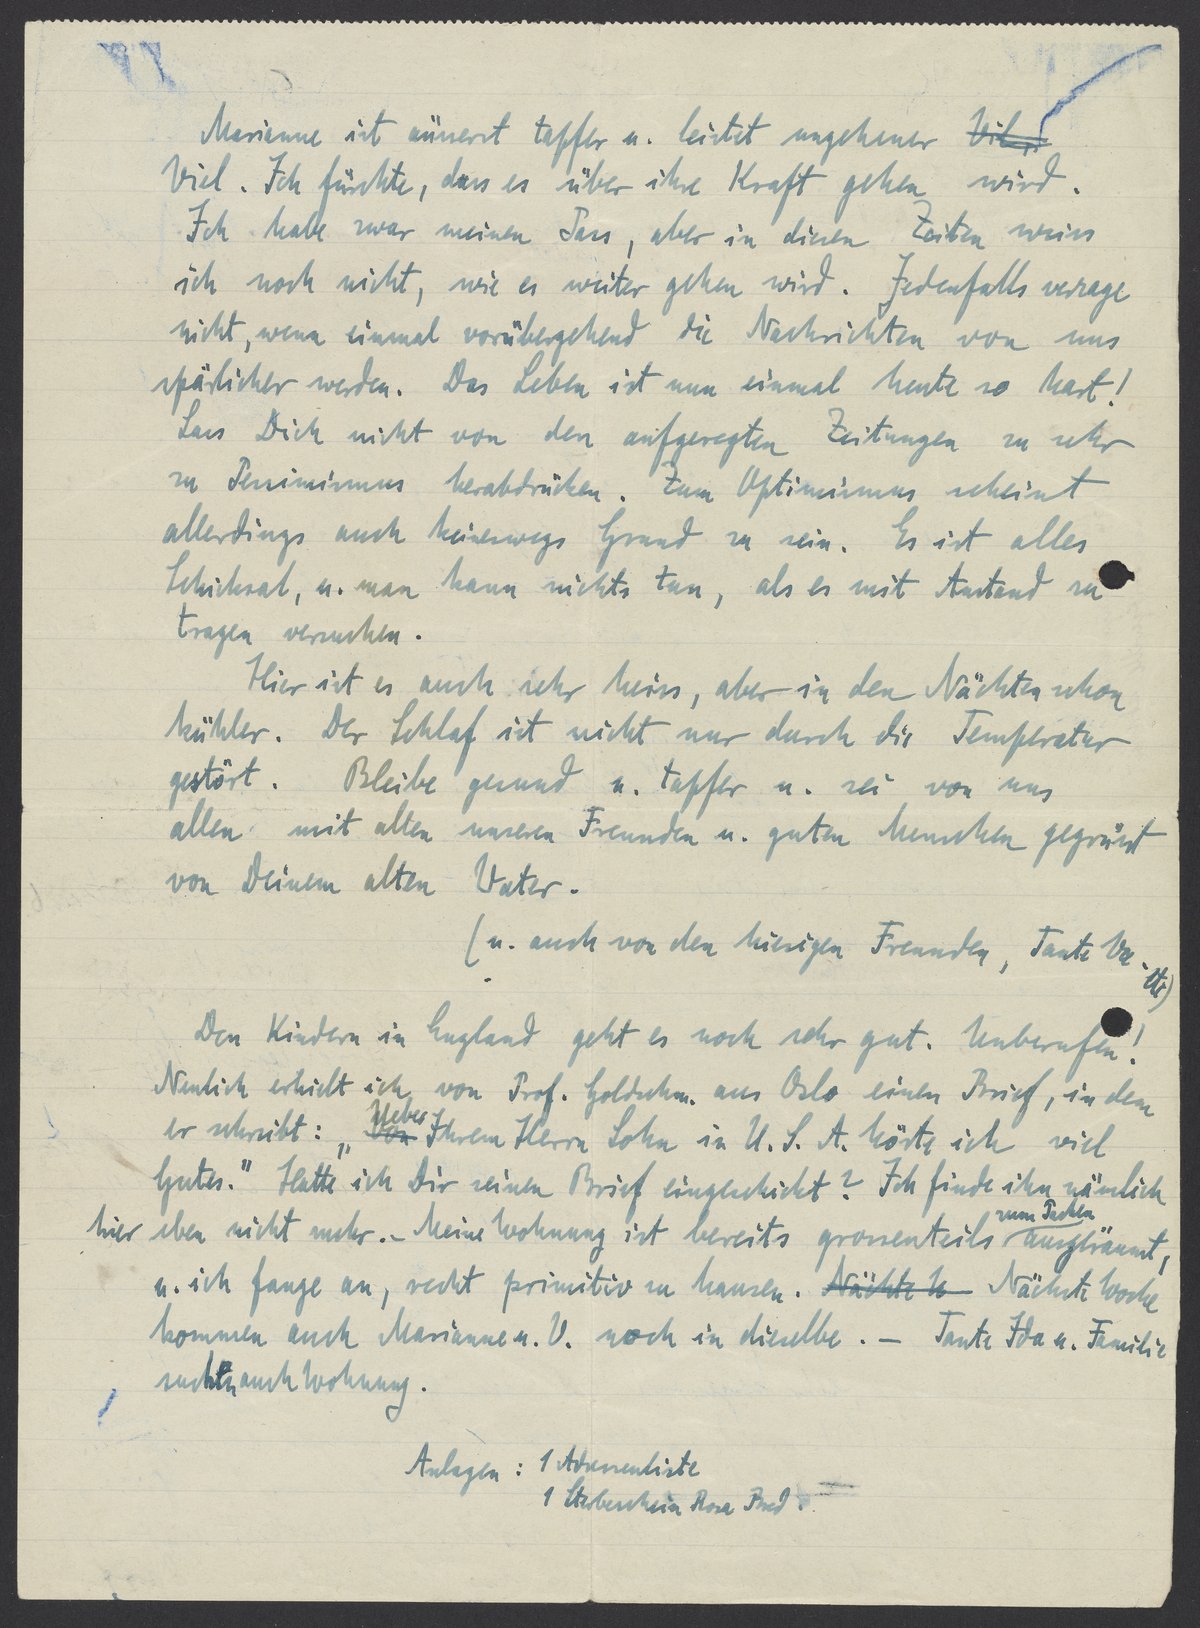 Marianne ist äusserst tapfer u. leistet ungeheuer Viel
Viel. Ich fürchte, dass es über ihre Kraft gehen wird.
Ich habe zwar meinen Pass, aber in diesen Zeiten weiss
ich noch nicht, wie es weiter gehen wird. Jedenfalls verzage
nicht, wenn einmal vorübergehend die Nachrichten von uns
spärlicher werden. Das Leben ist nun einmal heute so hart!
Lass Dich nicht von den aufgeregten Zeitungen zu sehr
zu Pessimismus herabdrücken. Zum Optimismus scheint
allerdings auch keineswegs Grund zu sein. Es ist alles
Schicksal, u. man kann nichts tun, als es mit Anstand zu
tragen versuchen.
Hier ist es auch sehr heiss, aber in den Nächten schon
kühler. Der Schlaf ist nicht nur durch die Temperatur
gestört. Bleibe gesund u. tapfer u. sei von uns
allen mit allen unseren Freunden u. guten Menschen gegrüsst
von Deinem alten Vater.
(u. auch von den hiesigen Freunden, Tante
Den Kindern in England geht es noch sehr gut. Unberufen!
Neulich erhielt ich von Prof. Goldschm. aus Oslo einen Brief, in dem
er schreibt: „Von Ueber Ihrem Herrn Sohn in U.S.A. hörte ich viel
Gutes." Hatte ich Dir seinen Brief eingeschickt? Ich finde ihn nämlich
hier eben nicht mehr. – Meine Wohnung ist bereits grossenteils zum Packen ausgeräumt,
u. ich fange an, recht primitiv zu hausen. Nächte W Nächste Woche
kommen auch Marianne u. V. noch in dieselbe. – Tante Ida u. Familie
suchen auch Wohnung.
Anlagen: 1 Adressenliste
1 Sterbeschein Rosa Fred.